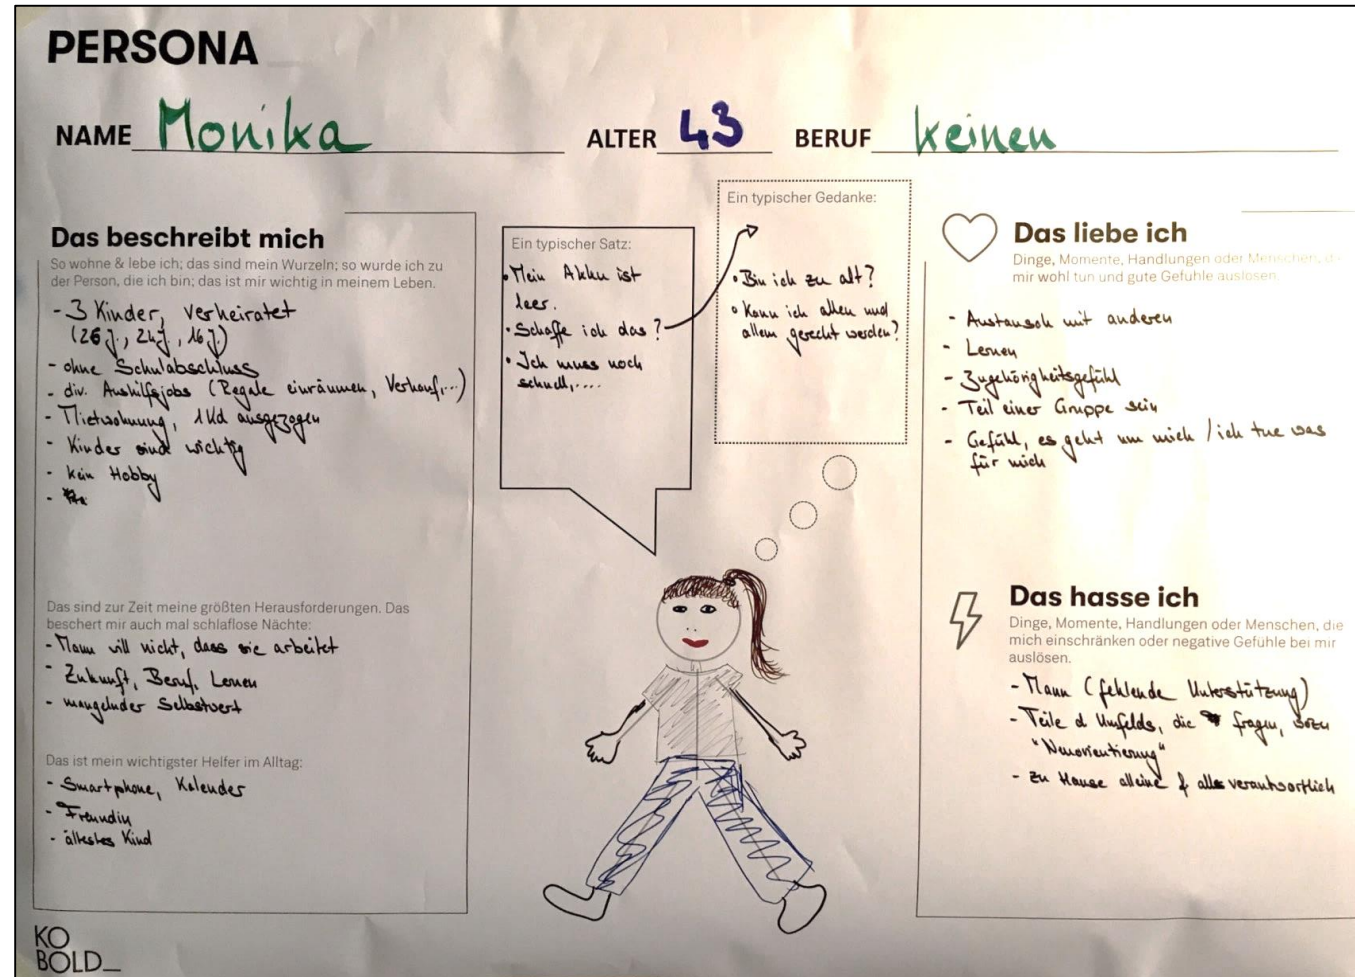 PERSONA
NAME Monika ALTER 43 BERUF keinen
Das beschreibt mich
So wohne & lebe ich; das sind mein Wurzeln; so wurde ich zu
der Person, die ich bin; das ist mir wichtig in meinem Leben.
- 3 Kinder, verheiratet
(26 J., 24 J., 16 J.)
- ohne Schulabschluss
- div. Aushilfsjobs (Regale einräumen, Verkauf,...)
- Mietwohnung, 1 Kd ausgezogen
- Kinder sind wichtig
- kein Hobby
-
Das sind zur Zeit meine größten Herausforderungen. Das
beschert mir auch mal schlaflose Nächte:
- Mann will nicht, dass sie arbeitet
- Zukunft, Beruf, Lernen
- mangelnder Selbstwert
Das ist mein wichtigster Helfer im Alltag:
- Smartphone, Kalender
- Freundin
- ältestes Kind
Ein typischer Satz:
• Mein Akku ist
leer.
• Schaffe ich das?
• Ich muss noch
schnell,....
Ein typischer Gedanke:
• Bin ich zu alt?
• Kann ich allen und
allem gerecht werden?
Das liebe ich
Dinge, Momente, Handlungen oder Menschen,
mir wohl tun und gute Gefühle auslösen.
- Austausch mit anderen
- Lernen
- Zugehörigkeitsgefühl
- Teil einer Gruppe sein
- Gefühl, es geht um mich / ich tue was
für mich
Das hasse ich
Dinge, Momente, Handlungen oder Menschen, die
mich einschränken oder negative Gefühle bei mir
auslösen.
- Mann (fehlende Unterstützung)
- Teile d Umfelds, die fragen, wozu
"Neuorientierung"
- zu Hause alleine f alles verantwortlich
KO
BOLD_